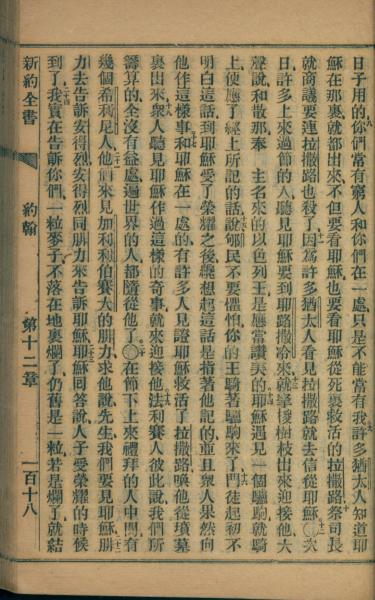 日子用的你們常有窮人和你們在一處只是不能常有我許多猶太人知道耶
穌在那裏就都出來不但要看耶穌也要看耶穌從死裏救活的拉撒路祭司長
就商議要連拉撒路也殺了因爲許多猶太人看見拉撒路就去信從耶穌〇次
日許多上來過節的人聽見耶穌要到耶路撒冷來就拏樹枝出來迎接他大
聲說和散那奉主名來的以色列王是應當讚美的耶穌遇見一個驢駒就騎
上便應了經上所記的話說郇民不要懼怕你的王騎著驢駒來了門徒起初不
明白這話到耶穌受了榮耀之後纔想起這話是指著他記的並且衆人果然向
他作這樣事和耶穌在一處的有許多人見證耶穌救活了拉撒路喚他從墳墓
裏出來衆人聽見耶穌作過這樣的奇事就來迎接他法利賽人彼此說我們所
籌算的全沒有益處遍世界的人都隨從他了〇在節下上來禮拜的人中間有
幾個希利尼人他們來見加利利伯賽大的腓力求他說先生我們要見耶穌腓
力去告訴安得烈安得烈同腓力來告訴耶穌耶穌回答說人子受榮耀的時候
到了我實在告訴你們一粒麥子不落在地裏爛了仍舊是一粒若是爛了就結
新約全書
約翰
第十二章
一百十八